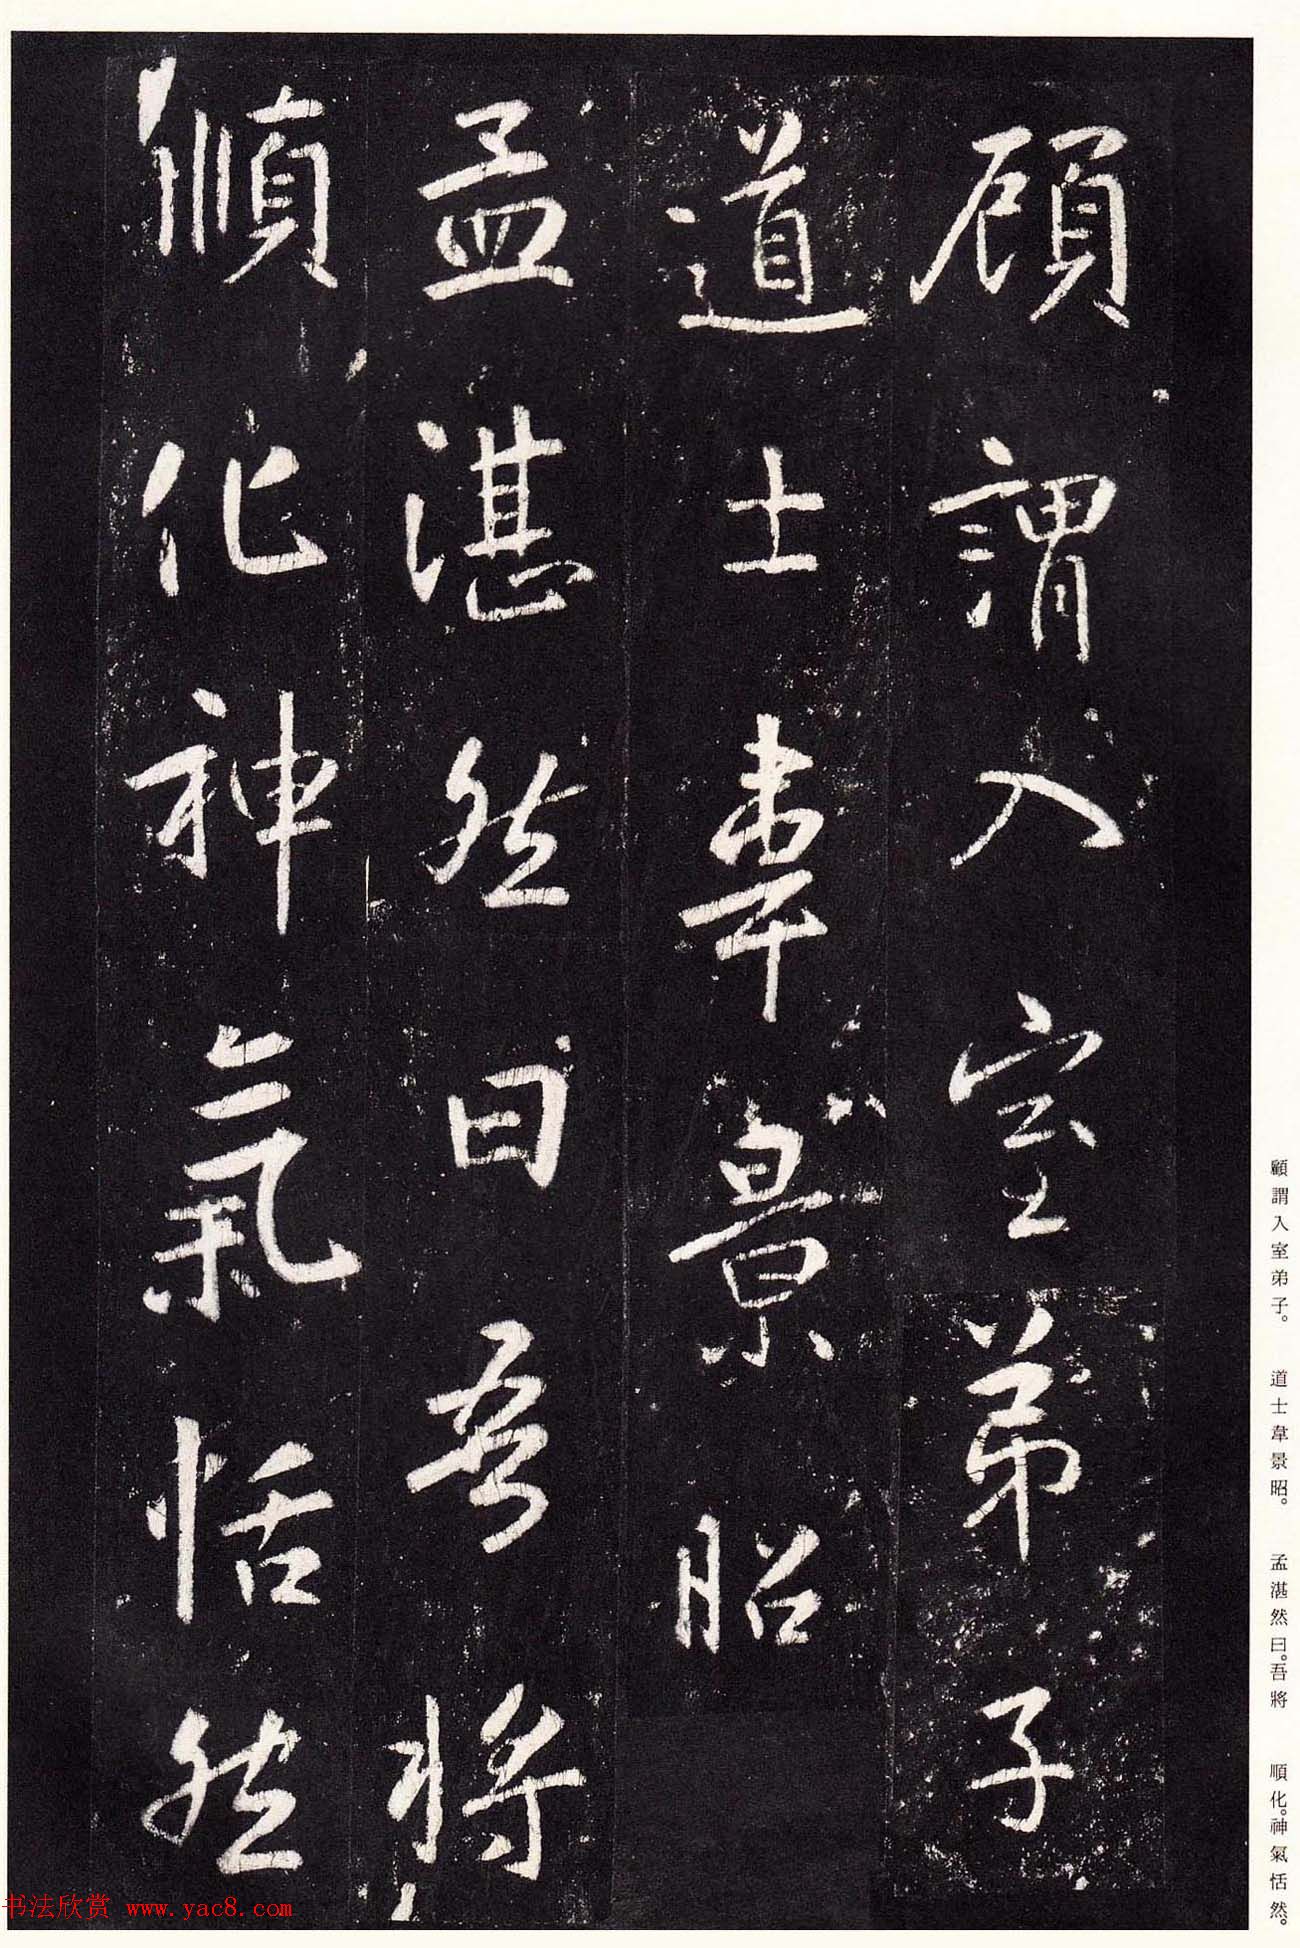 顧謂入室弟子
道士韋景昭
孟湛然曰吾將
順化神氣恬然
顧謂入室弟子。 道士韋景昭。 孟湛然曰。吾將 順化。神氣恬然。
书法欣赏 www.yac8.com